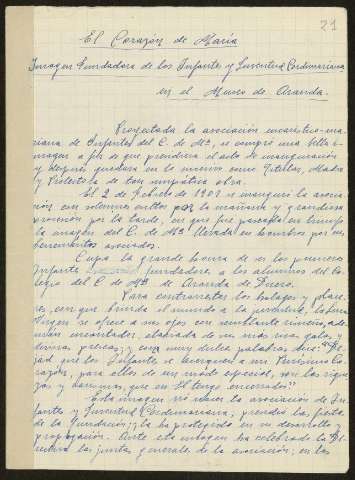 21
El Corazón de María
Imagen Fundadora de los Infantes y Juventud Cordimariana
en el Museo de Aranda.
Proyectada la asociación
de Infantes del C. de Mª, se compró una bella i-
magen a fin de que presidiera el acto de inauguración
y después quedara en la misma como Titular, Madre
y Protectora de tan simpática obra.
El 2 de Febrero de 1909 se inauguró la asocia-
ción con solemnes cultos por la mañana y grandiosa
procesión por la tarde, en que fue paseada en triunfo
la imagen del C. de Mª llevada en hombros por sus
asociados.
Cupo la grande honra de ser los primeros
Infantes fundadores a los alumnos del Co-
legio del C. de Mª de Aranda de Duero.
Para contrarrestar los halagos y place-
res, con que brinda el mundo a la juventud, la
Virgen se ofrece a sus ojos con semblante risueño, ade-
mán encantador, ataviada de sus más ricas galas y
divinas preseas; y con muy dulces palabras dice: "De-
jad que los Infantes se acerquen a mi Purísimo Co-
razón, para ellos de un modo especial, son las rique-
zas y carismas, que en él tengo encerrados"
Esta imagen vió nacer la asociación de In-
fantes y Juventud Cordimariana, presidió la fiesta
de la fundación, la ha protegido en su desarrollo y
propagación. Ante esta imagen ha celebrado la Di-
rectiva las juntas generales de la asociación; en las